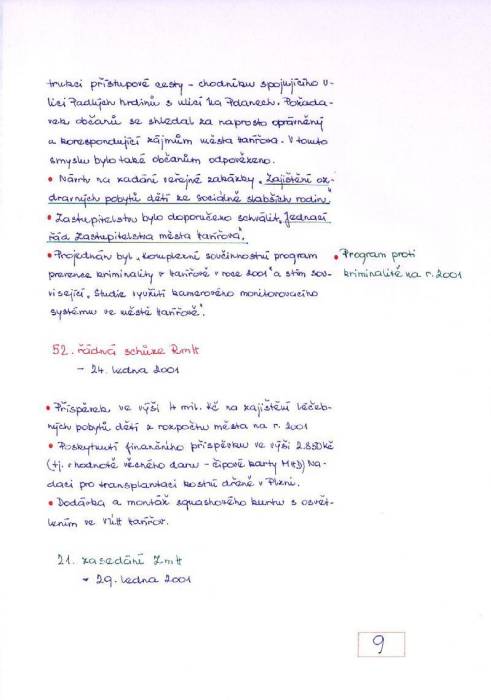 trukci přístupové cesty - chodníku spojujícího u-
lici Padlých hrdinů s ulicí Na Pdanech. Požada-
vek občanů se shledal za naprosto oprávněný
a korespondující zájmům města Karviná. V tomto
smyslu bylo také občanům odpovězeno.
• Návrh na zadání veřejné zakázky „Zajištění oz-
dravných pobytů dětí ze sociálně slabších rodin“.
• Zastupitelstvu bylo doporučeno schválit „Jednací
řád Zastupitelstva města Karviná“.
• Projednán byl „Komplexní součinnostní program
prevence kriminality v Karviné v roce 2001“ a s tím sou-
visející „Studie využití kamerového monitorovacího
systému ve městě Karviné“.
• Program proti
kriminalitě na r. 2001
52. řádná schůze RmK
- 24. ledna 2001
• Příspěvek ve výši 4 mil. Kč na zajištění léčeb-
ných pobytů dětí z rozpočtu města na r. 2001
• Poskytnutí finančního příspěvku ve výši 2.850 Kč
(tj. v hodnotě věcného daru - čipové karty MHD) Na-
daci pro transplantaci kostní dřeně v Plzni.
• Dodávka a montáž squashového kurtu s osvět-
lením ve
21. zasedání ZmK
- 29. ledna 2001
9